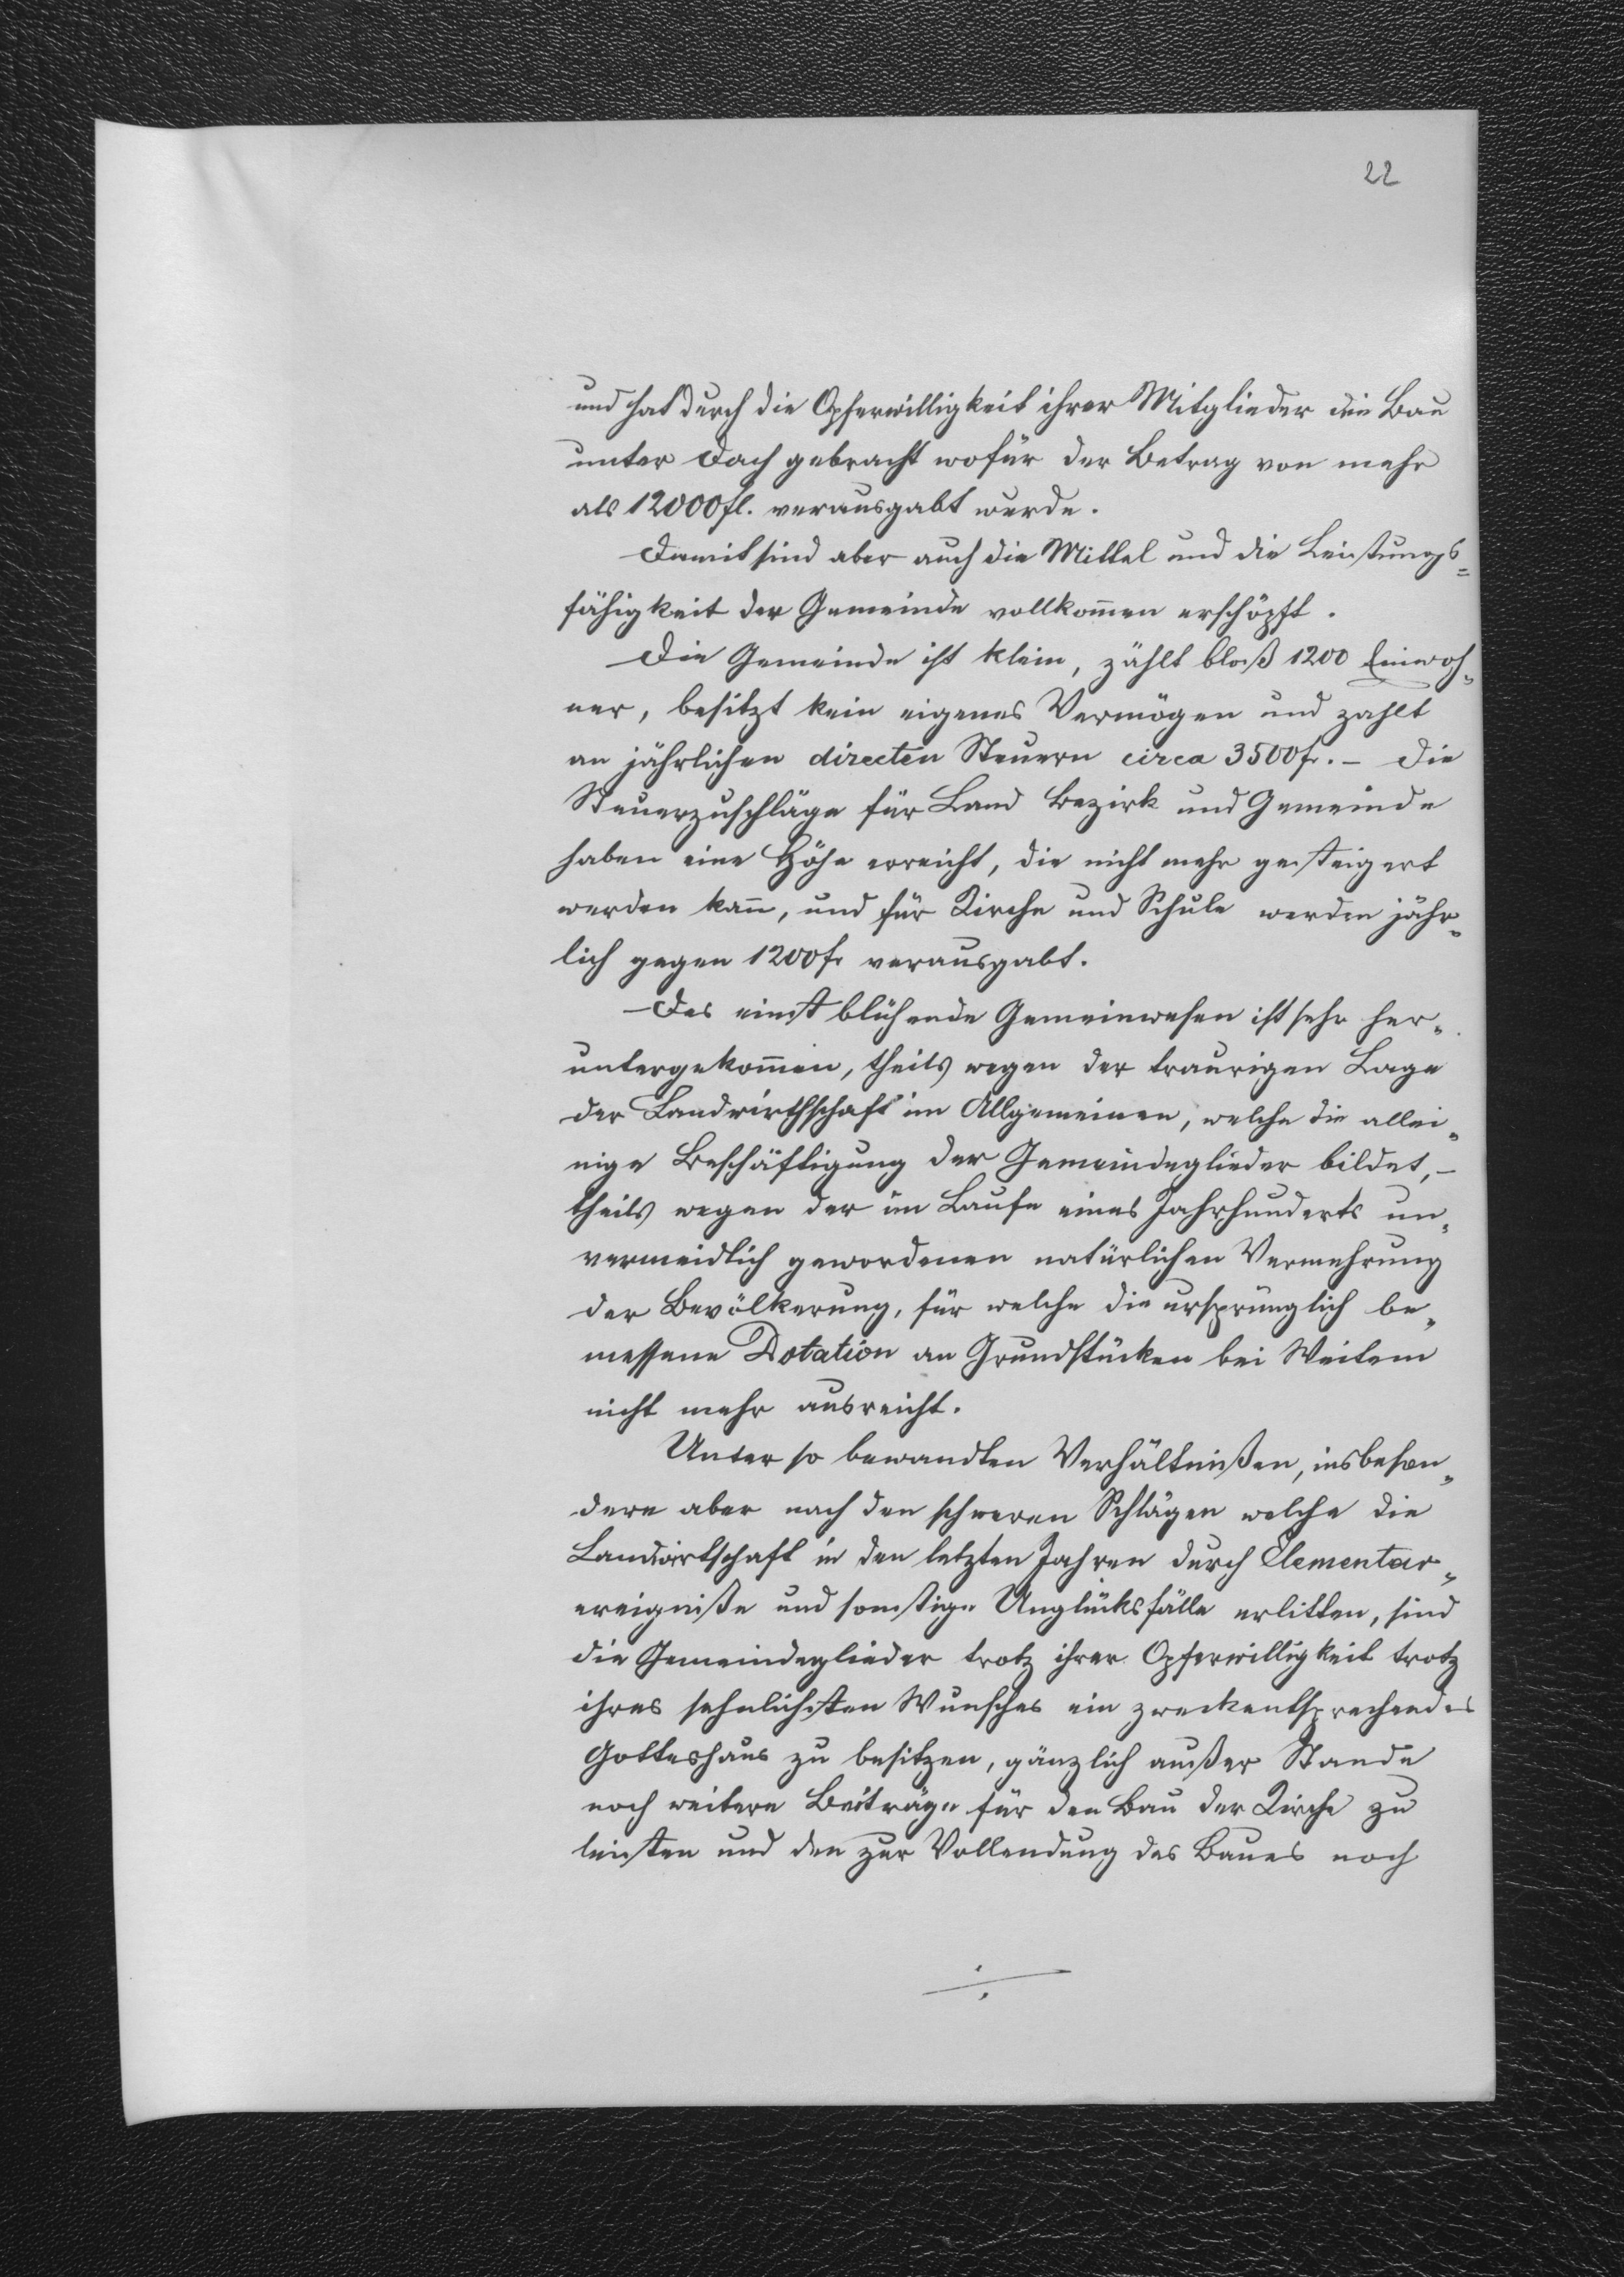 22
und hat durch die Opferwilligkeit ihrer Mitglieder die Bau
unter Dach gebracht wofür der Betrag von mehr
als 12000 fl. verausgabt wurde.
Damit sind aber auch die Mittel und die Leistungs=
fähigkeit der Gemeinde vollkom̄en erschöpft.
Die Gemeinde ist klein, zählt bloß 1200 Einwoh„
ner, besitzt kein eigenes Vermögen und zahlt
an jährlichen directen Steuern circa 3500 fr. – Die
Steuerzuschläge für Land Bezirk und Gemeinde
haben eine Höhe erreicht, die nicht mehr gesteigert
werden kan̄, und für Kirche und Schule werden jähr„
lich gegen 1200 fr verausgabt.
Das einst blühende Gemeinwesen ist sehr her„
untergekom̄en, theils wegen der traurigen Lage
der Landwirthschaft im Allgemeinen, welche die allei„
nige Beschäftigung der Gemeindeglieder bildet, –
theils wegen der im Laufe eines Jahrhunderts un„
vermeidlich gewordenen natürlichen Vermehrung
der Bevölkerung, für welche die ursprünglich be„
messene Dotation an Grundstücken bei Weitem
nicht mehr ausreicht.
Unter so bewandten Verhältnißen, insbeson„
dere aber nach den schweren Schlägen welche die
Landwirtschaft in den letzten Jahren durch Elementar„
ereigniße und sonstige Unglücksfälle erlitten, sind
die Gemeindeglieder trotz ihrer Opferwilligkeit trotz
ihres sehnlichsten Wunsches ein zweckentsprechendes
Gotteshaus zu besitzen, gänzlich außer Stande
noch weitere Beiträge für den Bau der Kirche zu
leisten und den zur Vollendung des Baues noch
./.